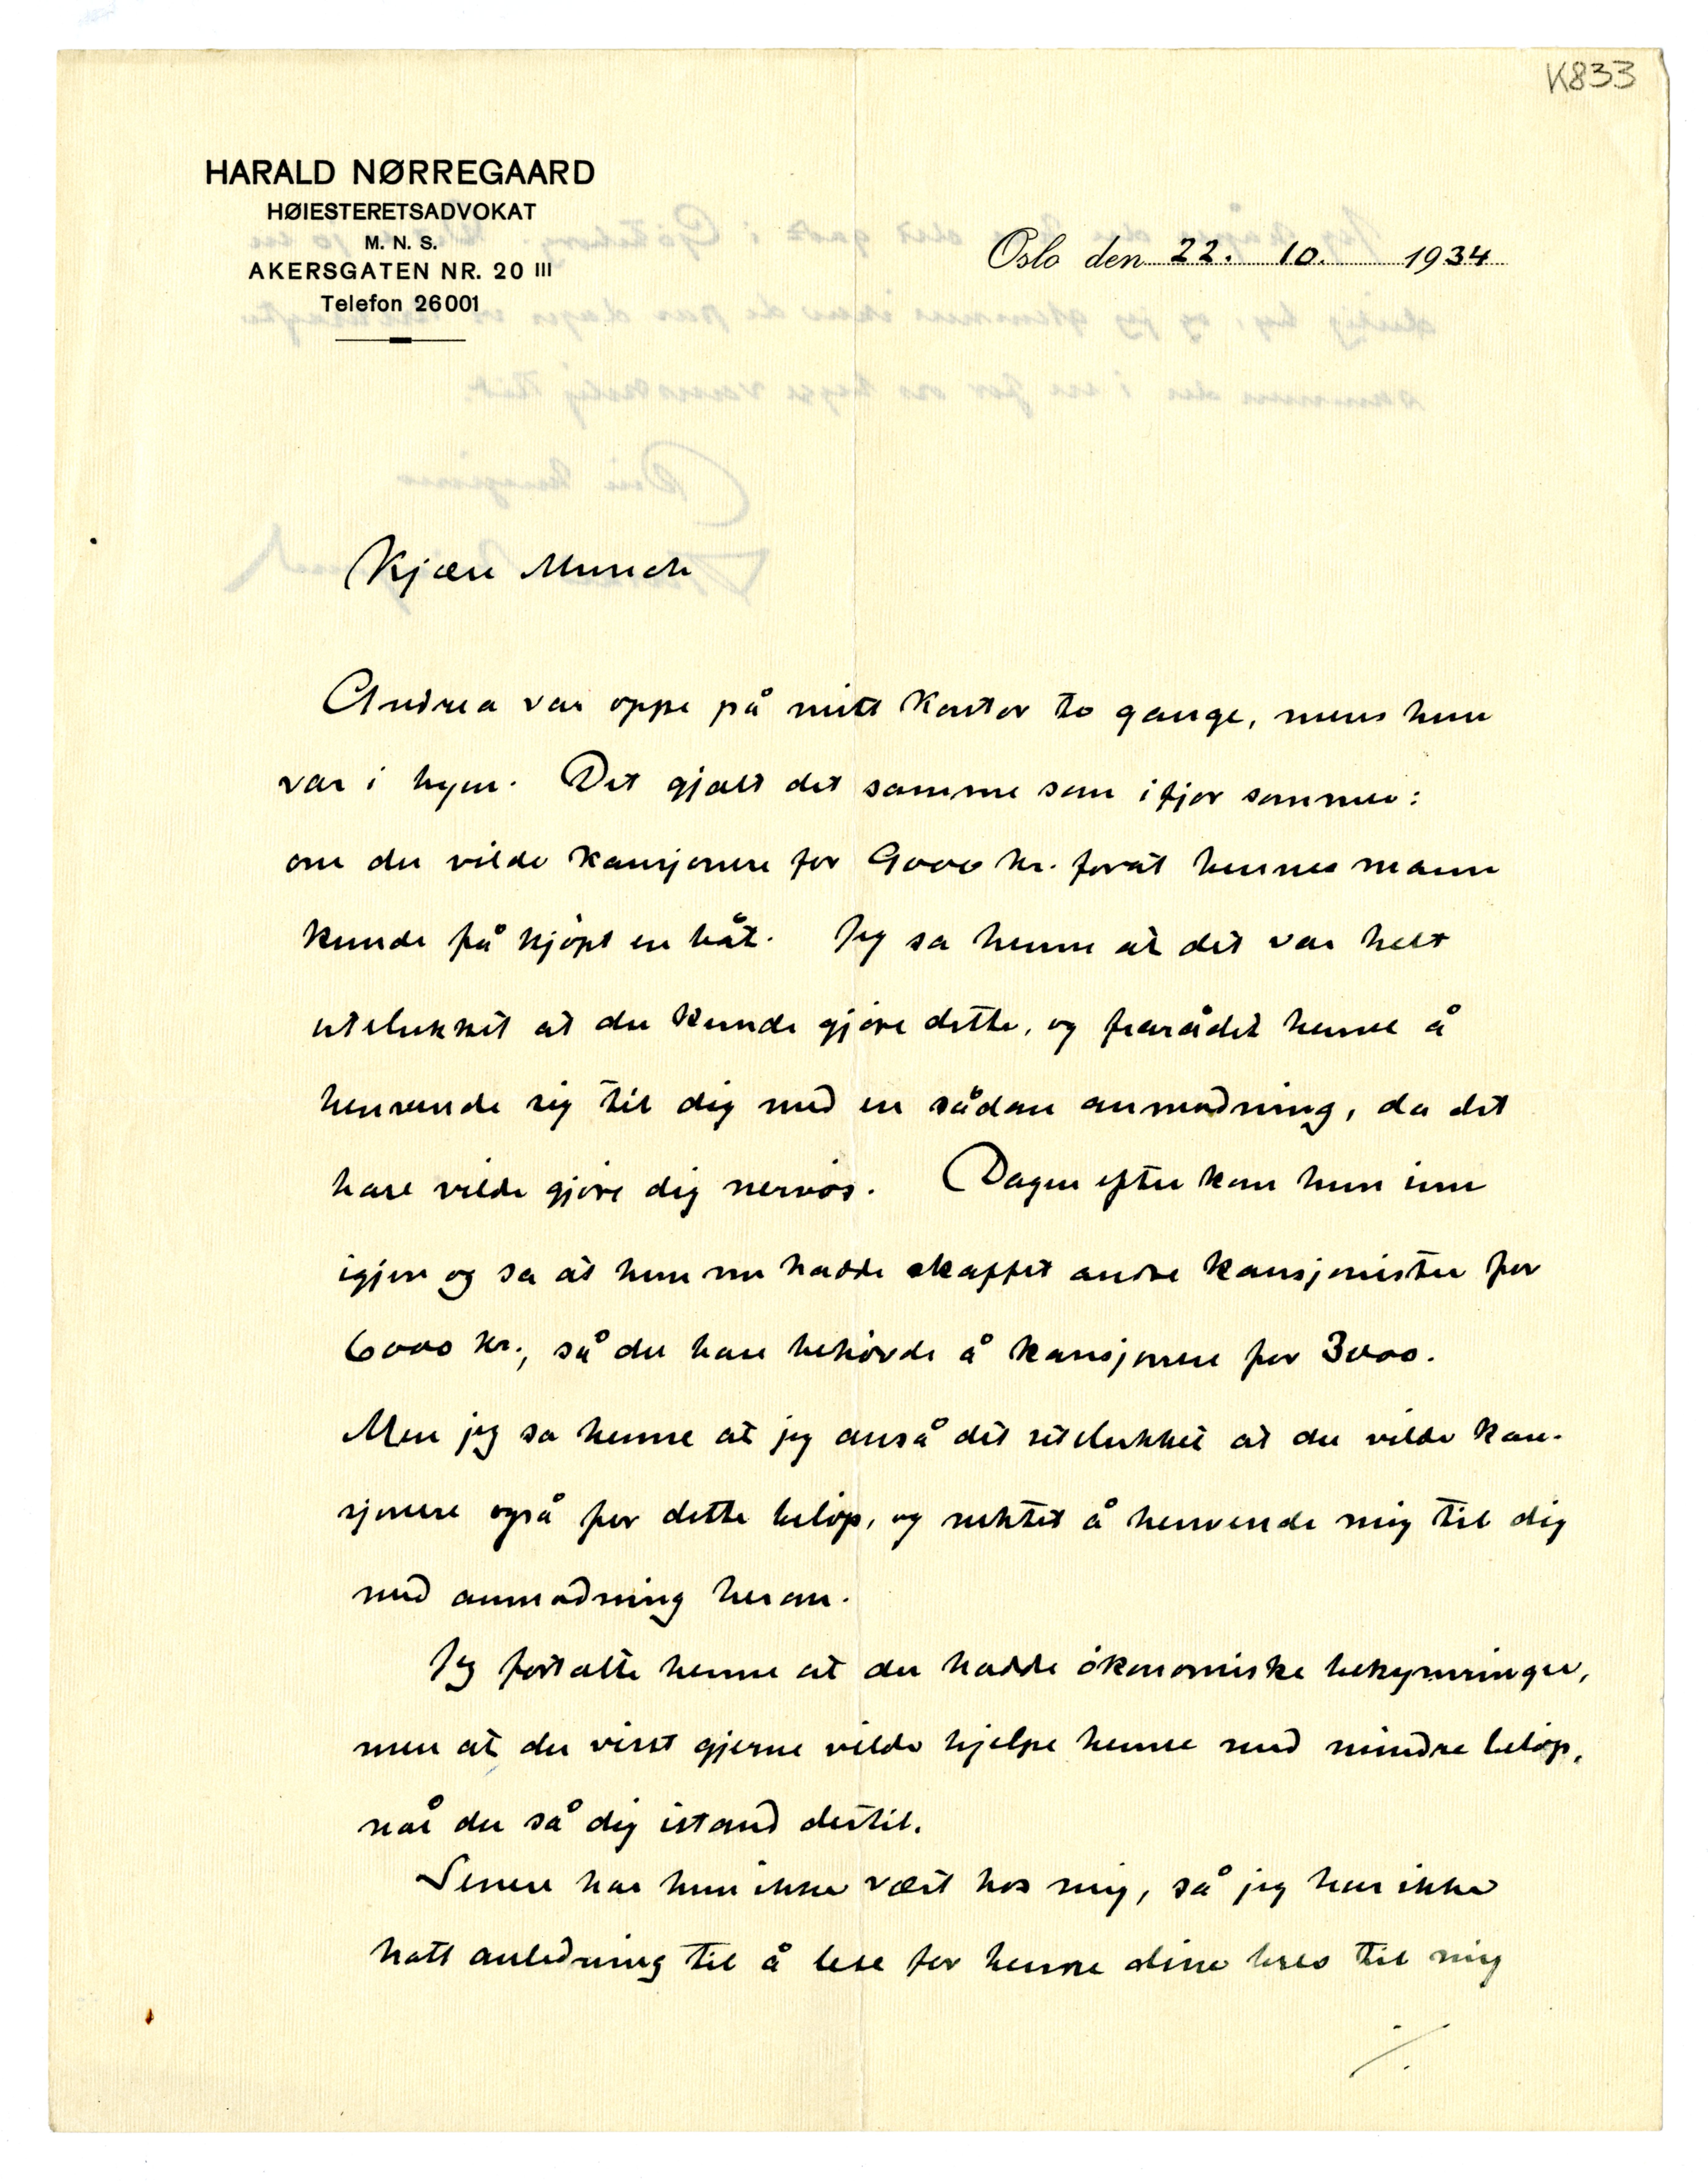 K833
HARALD NØRREGAARD
HØIESTERETSADVOKAT
M. N. S.
AKERSGATEN NR. 20 III
Telefon 26001
Oslo den 22. 10. 1934
Kjære Munch
Andrea var oppe på mitt kontor to gange, mens hun
var i byen. Det gjalt det samme som ifjor sommer:
om du vilde kausjonere for 9000 kr. forat hennes mann
kunde få kjøpt en båt. Jeg sa henne at det var helt
utelukket at du kunde gjøre dette, og frarådet henne å
henvende sig til dig med en sådan anmodning, da det
bare vilde gjøre dig nervøs. Dagen efter kom hun inn
igjen og sa at hun nu hadde skaffet andre kausjonister for
6000 kr., så du bare behøvde å kausjonere for 3000.
Men jeg sa henne at jeg anså det utelukket at du vilde kau-
sjonere også for dette beløp, og nektet å henvende mig til dig
med anmodning herom.
Jeg fortalte henne at du hadde økonomiske bekymringer,
men at du visst gjerne vilde hjelpe henne med mindre beløp,
når du så dig istand dertil.
Senere har hun ikke vært hos mig, så jeg har ikke
hatt anledning til å lese for henne dine brev til mig
./.